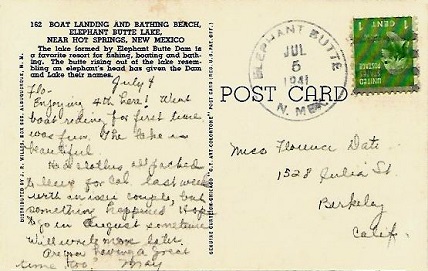 162 BOAT LANDING AND BATHING BEACH,
ELEPHANT BUTTE LAKE,
NEAR HOT SPRINGS, NEW MEXICO
The lake formed by Elephant Butte Dam is
a favorite resort for fishing, boating and bath-
ing. The butte rising out of the lake resem-
bling an elephant's head box given the Dam
and Lake their names.
July 4
Flo-
Enjoying 4th here! Went
boat riding for first time
was fun. The lake is
beautiful
Had clothes all packed
to leave for Cal. last week
with an couple, but
something happened. Hope
to go in August sometime
Will write more later.
Are you having a great
time too? May
DISTRIBUTED BY J. R. WILLIS, BOX 668, ALBUQUERQUE, N. M.
ELEPHANT BUTTE
JUL
5
1941
N. MEX.
POST CARD
CENT
UNITED STATES POSTAGE
Miss Florence Date
1528 Julia St
Berkeley
Calif.